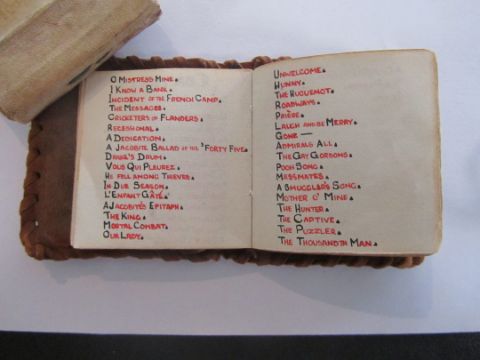 O Mistress Mine.
I Know a Bank.
Incident of the French Camp.
The Messages.
Cricketers of Flanders.
Recessional.
A Dedication.
A Jacobite Ballad of the 'Forty Five.
Drake's Drum.
Vous Qui Pleurez.
He fell Among Thieves.
In Due Season.
L'Enfant Gâté.
A Jacobite's Epitaph.
The King.
Mortal Combat.
Our Lady.
Unwelcome.
Hunny.
The Huguenot.
Roadways.
Prière.
Laugh and be Merry.
Gone —
Admirals All.
The Gay Gordons.
Pooh Song.
Messmates.
A Smuggler's Song.
Mother O' Mine.
The Hunter.
The Captive.
The Puzzler.
The Thousandth Man.